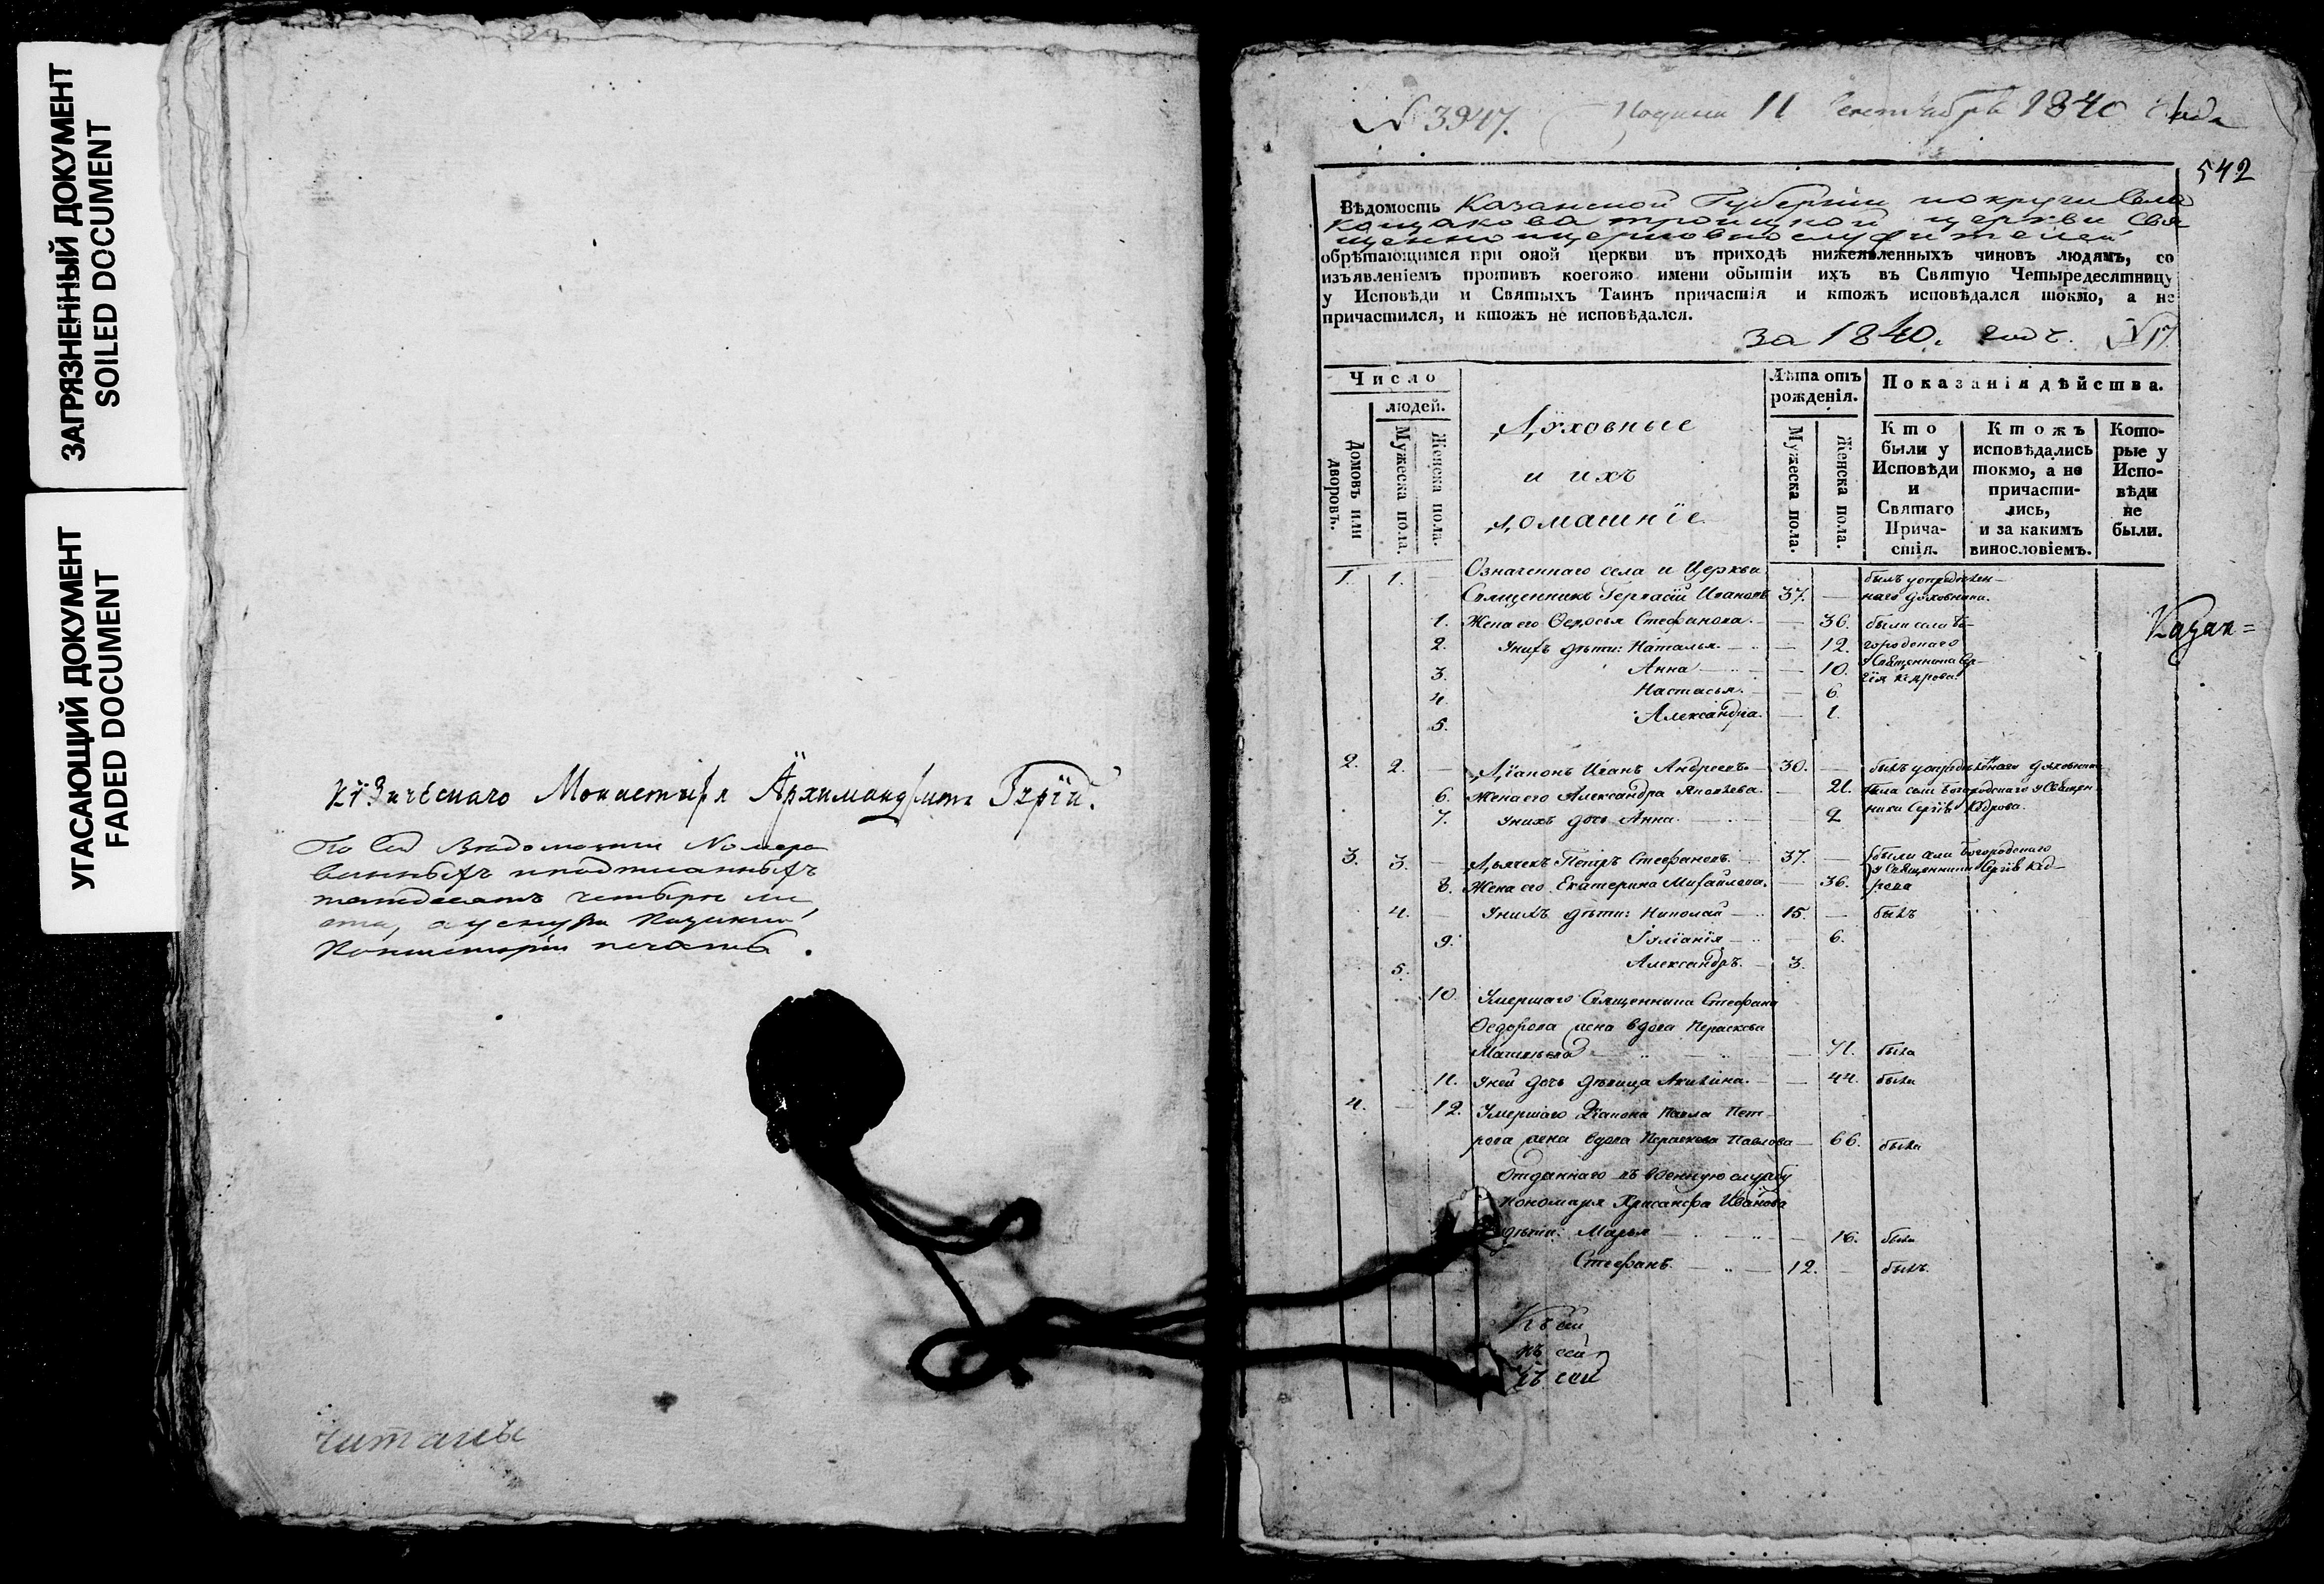 ЗАГРЯЗНЕННЫЙ ДОКУМЕНТ
SOILED DOCUMENT
УГАСАЮЩИЙ ДОКУМЕНТ
FADED DOCUMENT
Монастыря Архимандритъ Гурій.
По сей Вѣдомости Номеро
ванныхъ и подписанныхъ
пятдесятъ четыре ли
ста, а у снура Казанской
Консисторіи печать.
Читалъ
№ 3947. 11 Сентября 1840 года
542
Вѣдомость Казанской Губерніи округи Села
Кощакова троицкой церкви Свя
щенно церковно служителей
обрѣтающимся при оной церкви въ приходѣ нижеявленныхъ чиновъ людямъ, со
изъявленіемъ противъ коегожо имени обытіи ихъ въ Святую Четыредесятницу
у Исповѣди и Святыхъ Таинъ причастія и ктожъ исповѣдался токмо, а не
причастился, и ктожъ не исповѣдался.
за 1840. годъ. № 17
Число
людей.
Домовъ или дворовъ.
Мужеска пола.
Женска пола.
Духовные
и ихъ
домашніе
Лѣта отъ рожденія.
Мужеска пола.
Женска пола.
Показанія дѣйства.
Кто были у Исповѣди и Святаго Причастія.
Ктожъ исповѣдались токмо, а не причастились, и за какимъ винословіемъ.
Которые у Исповѣди не были.
1. 1. Означеннаго села и Церкви
Священникъ Герасій Ивановъ 37. — былъ у опредѣленнаго духовника.
1. Жена его Федосья Стефанова. — 36. были села Бо-
2. У нихъ дѣти: Наталья. — 12. городскаго
3. Анна — 10. у Священника Сер-
гія Кедрова.
4. Настасья. — 6.
5. Александра. — 1.
2. 2. — Діаконъ Иванъ Андреевъ. 30. — былъ у опредѣленнаго духовника
6. Жена его Александра Яковлева. — 21. была села Богородскаго у Священ-
7. У нихъ дочь Анна. — 2. ника Сергія Кедрова.
3. 3. — Дьячекъ Петръ Стефановъ. 37. — были села Богородскаго
у Священника Сергія Кед-
8. Жена его Екатерина Михайлова. — 36. рова
4. — У нихъ дѣти: Николай 15. — былъ
9. Іуліанія — 6.
5. Александръ. 3.
10. Умершаго Священника Стефана
Федорова жена вдова Параскева
Матвѣева — 71. была
11. У ней дочь дѣвица Акилина. — 44. была
4. — 12. Умершаго Діакона Павла Пет
рова жена вдова Параскева Павлова — 66. была
Отданнаго въ военную службу
пономаря Хрисанфа Иванова
дѣти: Марья — 16. была
Стефанъ. — 12. — былъ.
Къ сей
къ сей
Къ сей
Казан=